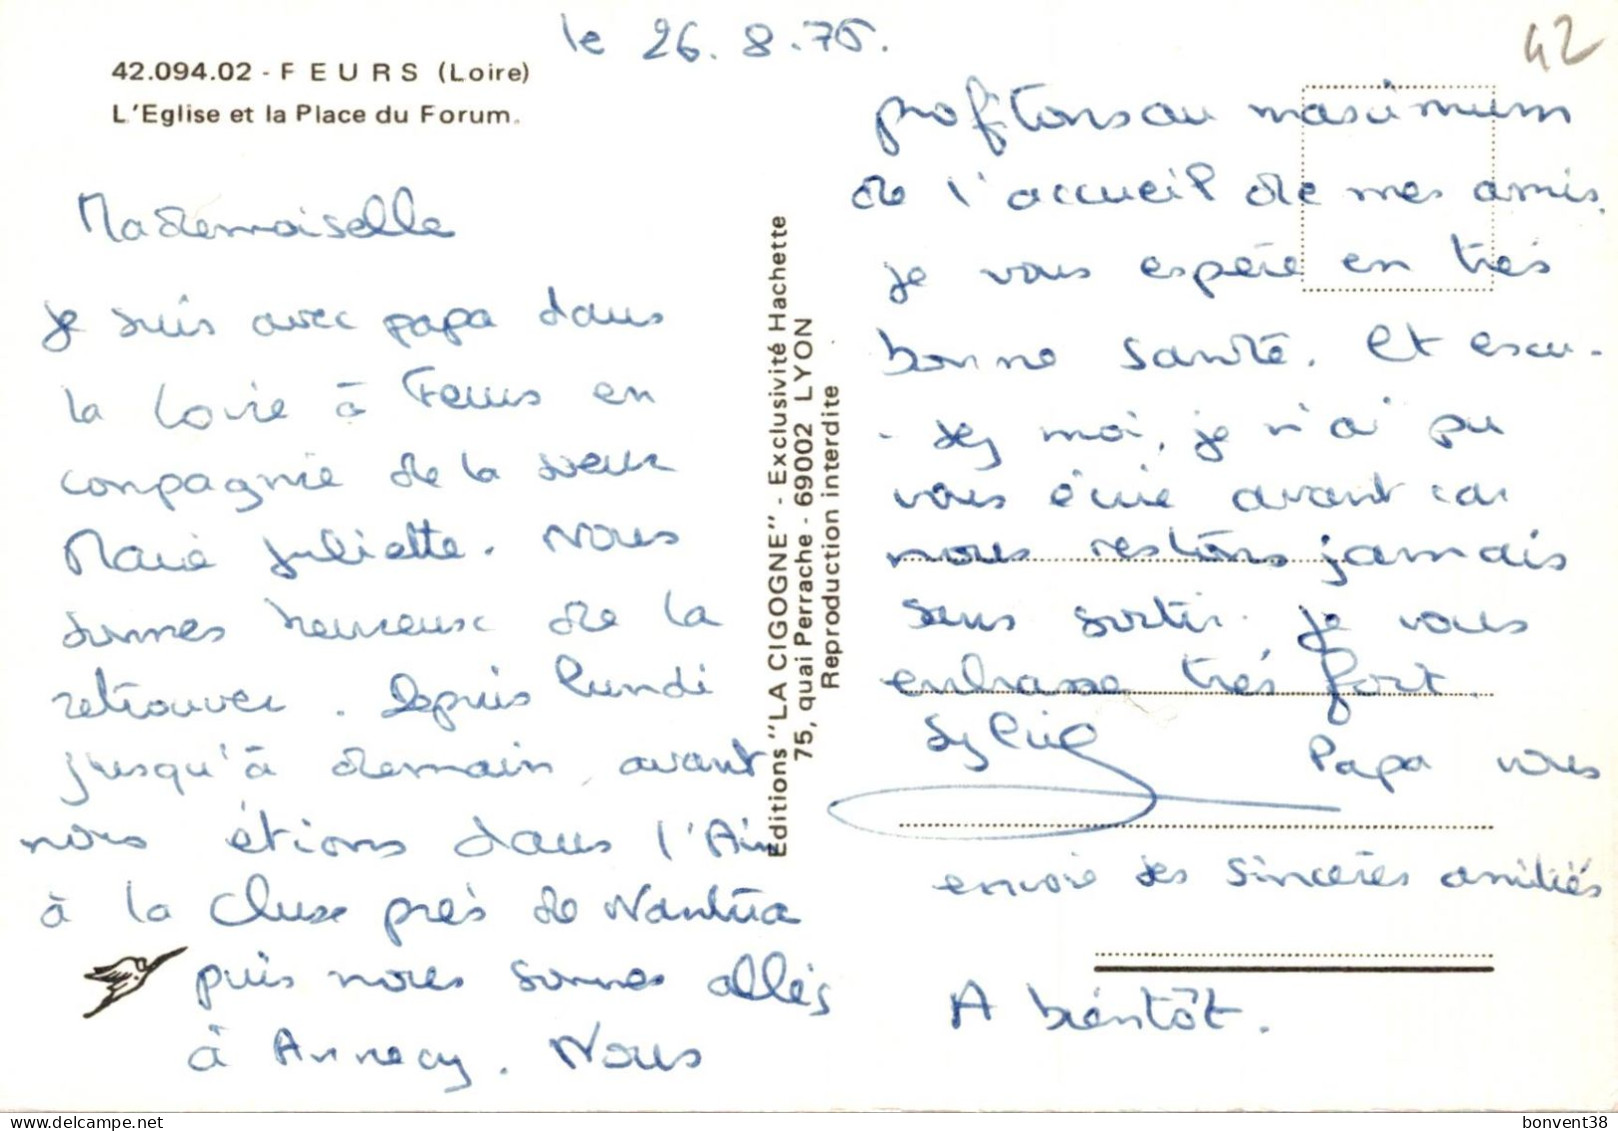 le 26.8.76.
42
42.094.02 - FEURS (Loire)
L'Eglise et la Place du Forum.
Mademoiselle
je suis avec papa dans
la Loire à Feurs en
compagnie de la soeur
Marie Juliette. Nous
sommes heureux de la
retrouver. Depuis lundi
jusqu'à demain, avant
nous étions dans l'Ain
à la Cluse près de Nantua
puis nous sommes allés
à Annecy. Nous
Editions "LA CIGOGNE" - Exclusivité Hachette
75, quai Perrache - 69002 LYON
Reproduction interdite
profitons au maximum
de l'accueil de mes amis.
je vous espère en très
bonne santé. Et excu-
-sez moi, je n'ai pu
vous écrire avant car
nous restions jamais
sans sortir. Je vous
embrasse très fort.
Sylvie
Papa vous
envoie ses sincères amitiés
A bientôt.
bonvent38